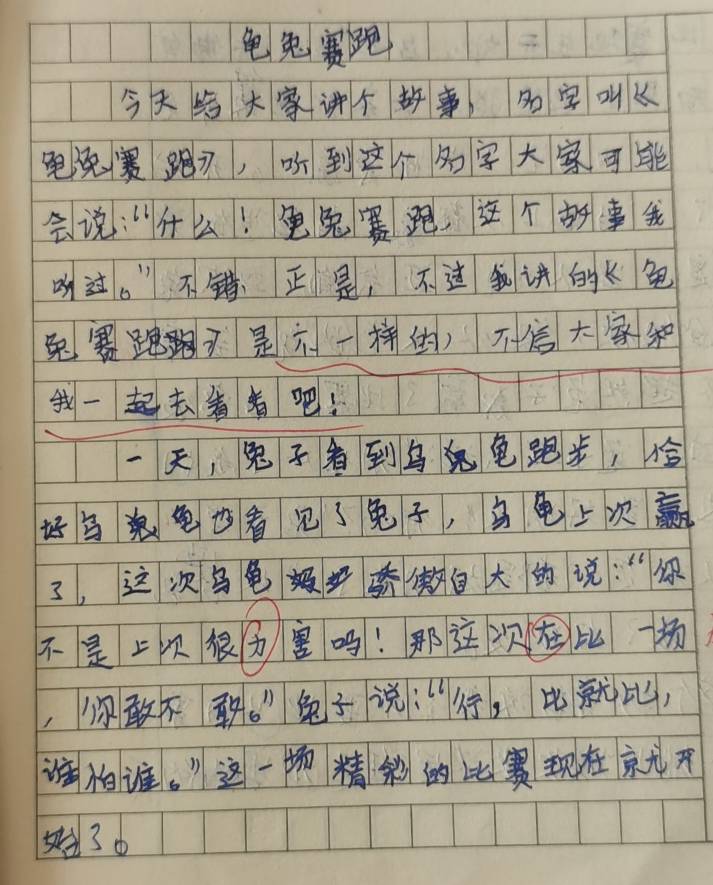 龟兔赛跑
今天给大家讲个故事，名字叫《
龟兔赛跑》，听到这个名字大家可能
会说：“什么！龟兔赛跑，这个故事我
听过。”不错，正是，不过我讲的《龟
兔赛跑》是不一样的，不信大家和
我一起去看看吧！
一天，兔子看到乌龟跑步，恰
好乌龟也看见了兔子，乌龟上次赢
了，这次乌龟骄傲自大的说：“你
不是上次很力害吗！那这次在比一场
，你敢不敢。”兔子说：“行，比就比，
谁怕谁。”这一场精彩的比赛现在就开
始了。